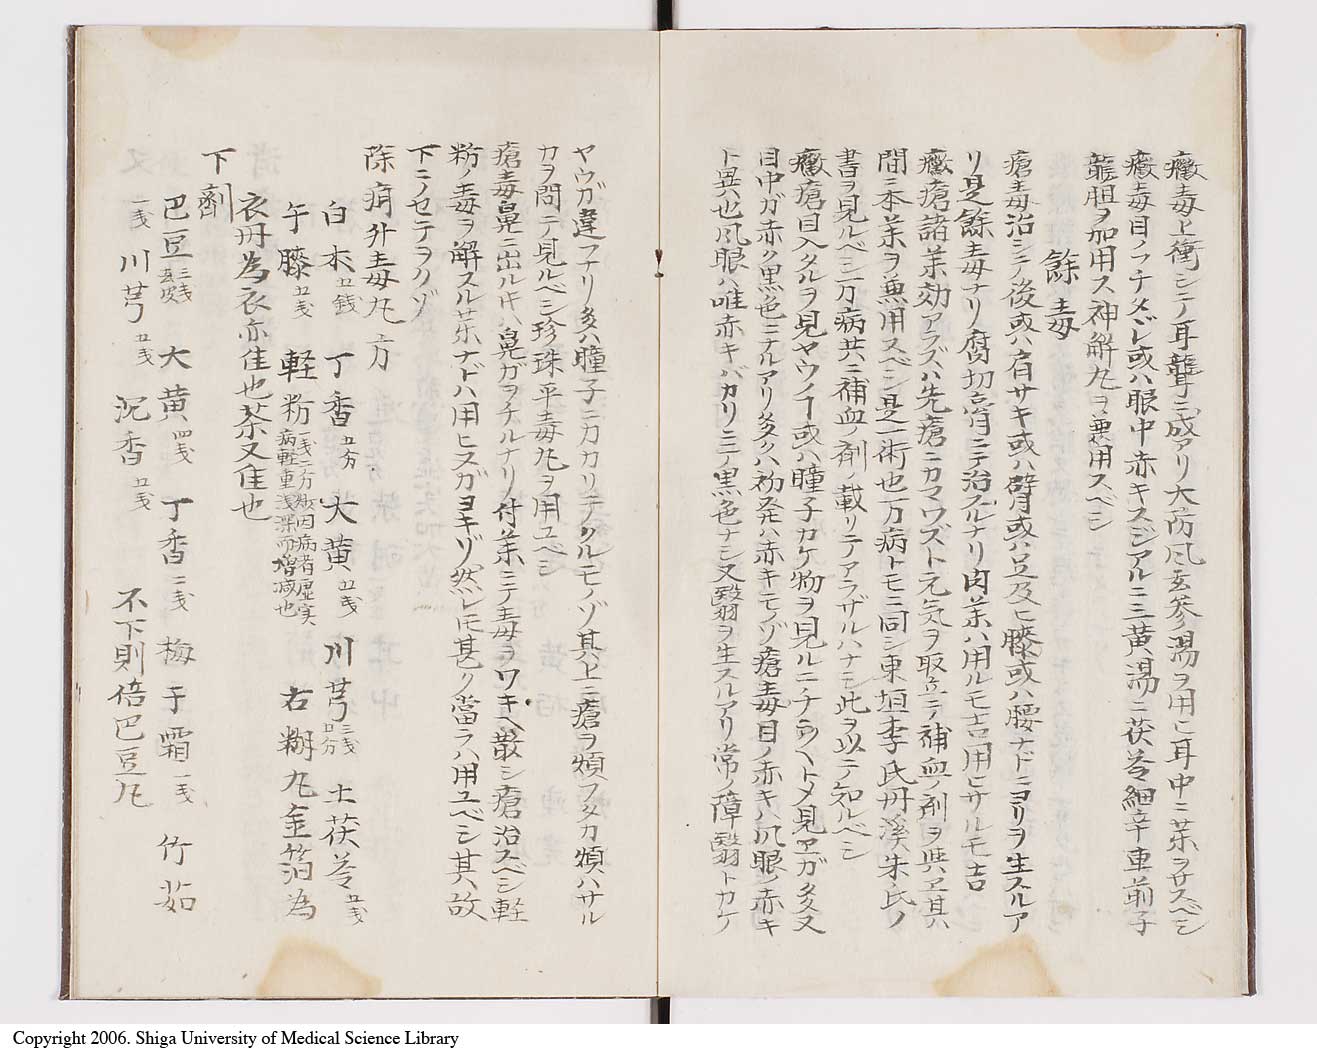 癥毒上衝シテ耳聾ニ成アリ大防風玄参湯ヲ用ヒ耳中ニ薬ヲサスベシ
癥毒目ノフチメグレ或ハ眼中赤キスジアルニ三黄湯ニ茯苓細辛車前子
龍胆ヲ加用ス神解丸ヲ兼用スベシ
餘毒
瘡毒治シテ後或ハ肩サキ或ハ臂或ハ足及ヒ膝或ハ腰ナドニヨリヲ生スルア
リ是餘毒ナリ腐切膏ニテ治スルナリ内薬ハ用ルモ吉用ヒサルモ吉
癥瘡諸薬効アラズハ先瘡ニカマワズト元気ヲ取立テ補血ノ剤ヲ與ヱ其ハ
間ニ本薬ヲ兼用スベシ是一術也万病トモニ同シ東垣李氏丹溪朱氏ノ
書ヲ見ルベシ万病共ニ補血ノ剤載リテアラザルハナシ此ヲ以テ知ルベシ
癥瘡目入タルヲ見ヤウノヿ或ハ瞳子カケ物ヲ見ルニチラヘトメ見ヱガ多又
目中ガ赤ク黒色ニナルアリ多クハ初発ハ赤キモノゾ瘡毒目ノ赤キハ風眼ノ赤キ
ト異也風眼ハ唯赤キバカリニテ黒色ナシ又翳ヲ生スルアリ常ノ障翳トカケ
ヤウガ違フナリ多ハ瞳子ニカカリテクルモノゾ其上ニ瘡ヲ煩フタカ煩ハサル
カヲ問テ見ルベシ珍珠平毒丸ヲ用ユベシ
瘡毒鼻ニ出ル𪜈ハ鼻ガヲチルナリ付薬ニテ毒ヲワキヘ散シ瘡治スベシ軽
粉ノ毒ヲ解スル薬ナドハ用ヒヌガヨキゾ然レ𪜈甚ク當ラハ用ユベシ其ハ故
下ニノセテヲクゾ
除痟外毒丸方
白朮五銭 丁香五分 大黄五戔 川芎三戔五分 土茯苓五戔
午膝五戔 軽粉 右糊丸金箔為
衣丹為衣亦佳也茶又佳也
下劑
巴豆三戔去皮 大黄四戔 丁香二戔 梅干霜一戔 竹茹
一戔 川芎五戔 沉香五戔 不下則倍巴豆丸